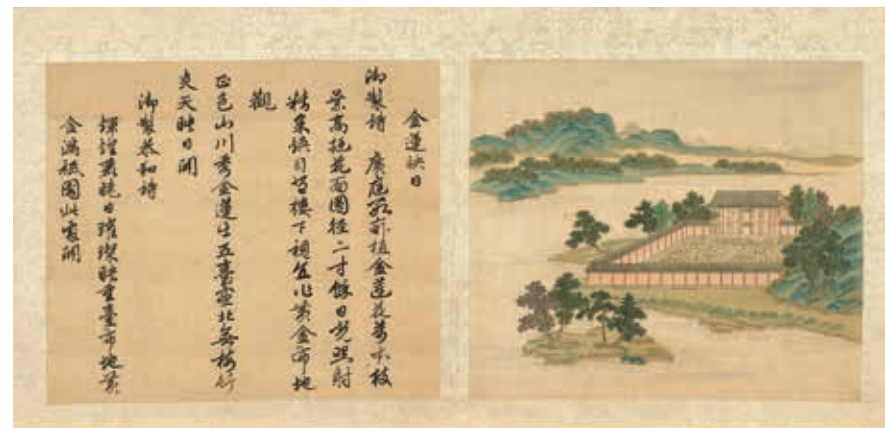 金蓮映日
御製詩 廣庭數畝植金蓮花萬本枝
葉高挺花面圓徑二寸餘日光照射
精采煥目登樓下視直作黃金布地
觀
正色山川秀金蓮出五臺塞北無梅竹
炎天映日開
御製恭和詩
曉日璀璨映重臺布地黃
金滿祇園此處開